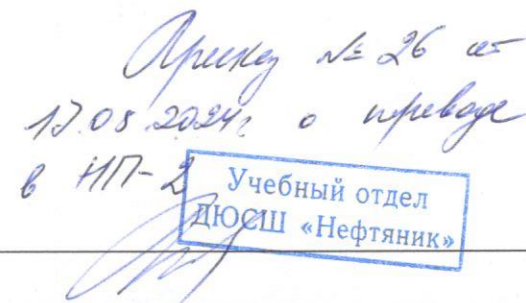 Приказ № 26 от
17.05.2024г. о переводе
в НП-2
Учебный отдел
ДЮСШ «Нефтяник»